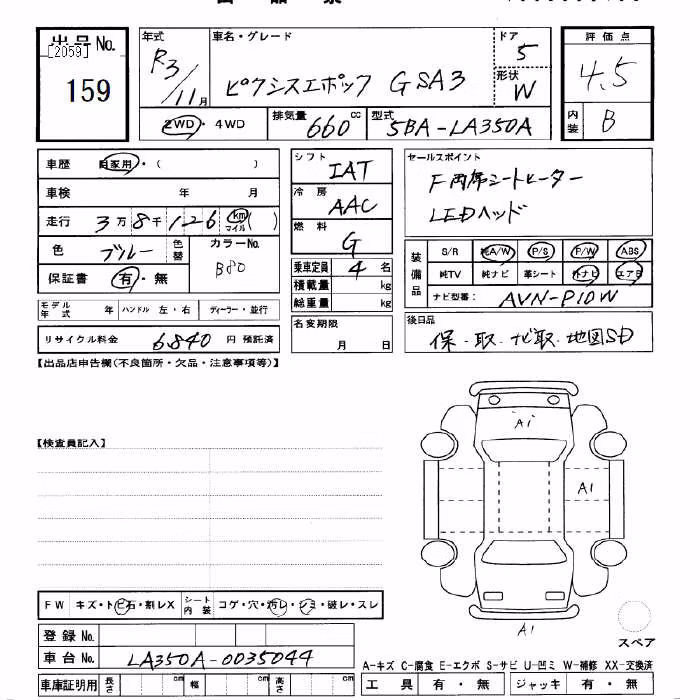 出品票
出品No.
[2059]
159
年式
R3/11月
車名・グレード
ピクシスエポック GSA3
ドア
5
形状
W
評価点
4.5
内装
B
2WD・4WD
排気量
660cc
型式
5BA-LA350A
車歴 自家用・( )
車検 年 月
走行 3万8千126 km マイル( )
色 ブルー
色替
カラーNo.
B80
保証書 有・無
モデル年式 年
ハンドル 左・右
ディーラー・並行
リサイクル料金 6840円 預託済
シフト
IAT
冷房
AAC
燃料
G
乗車定員 4名
積載量 kg
総重量 kg
名変期限
月 日
セールスポイント
F両席シートヒーター
LEDヘッド
装備品
S/R 純A/W P/S P/W ABS
純TV 純ナビ 革シート 外ナビ エアB
ナビ型番: AVN-P10W
後日品
保-取.ナビ取.地図SD
【出品店申告欄(不良箇所・欠品・注意事項等)】
【検査員記入】
A1
A1
A1
スペア
FW キズ・トビ石・割レX
シート内装 コゲ・穴・汚レ・シミ・破レ・スレ
登録No.
車台No. LA350A-0035044
車庫証明用 長さ cm 幅 cm 高さ cm
A-キズ C-腐食 E-エクボ S-サビ U-凹ミ W-補修 XX-交換済
工具 有・無
ジャッキ 有・無